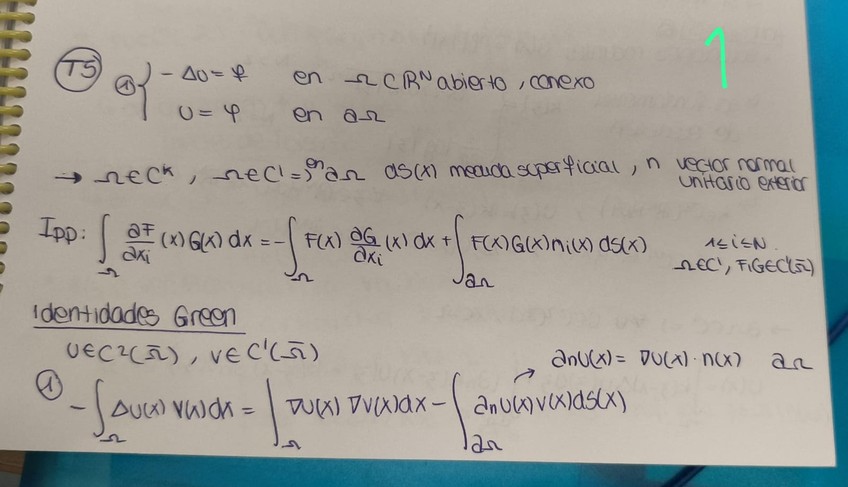 1
T5 ① { - Δu = φ en Ω ⊂ ℝᴺ abierto, conexo
u = φ en ∂Ω
→ Ω ∈ Cᵏ, Ω ∈ C¹ ⇒ en ∂Ω ds(x) medida superficial, n vector normal unitario exterior
IPP: ∫_Ω ∂F/∂xi (x) G(x) dx = - ∫_Ω F(x) ∂G/∂xi (x) dx + ∫_∂Ω F(x) G(x) ni(x) ds(x) 1 ≤ i ≤ N.
Ω ∈ C¹, F, G ∈ C¹(Ω̄)
Identidades Green
u ∈ C²(Ω̄), v ∈ C¹(Ω̄)
→ ∂nu(x) = ∇u(x) · n(x) ∂Ω
① - ∫_Ω Δu(x) v(x) dx = ∫_Ω ∇u(x) ∇v(x) dx - ∫_∂Ω ∂nu(x) v(x) ds(x)